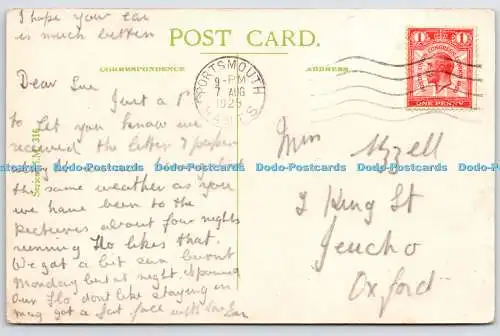 I hope your ear
is much better
POST CARD.
CORRESPONDENCE
ADDRESS
PORTSMOUTH
9-PM
7 AUG
1929
HANTS
1 1
POSTAL UNION CONGRESS
ONE PENNY
Dear Sue Just a P
to let you know we
received the letter & paper
the same weather as you
we have been to the
pictures about four nights
running Flo likes that.
We got a bit sun burnt
Monday but at night
our Flo dont like staying in
mag got a fat face with her Ear
Miss Uzzell
2 King St
Jeucho
Oxford
Dodo-Postcards Dodo-Postcards Dodo-Postcards Dodo-Postcards Dodo-Postcards